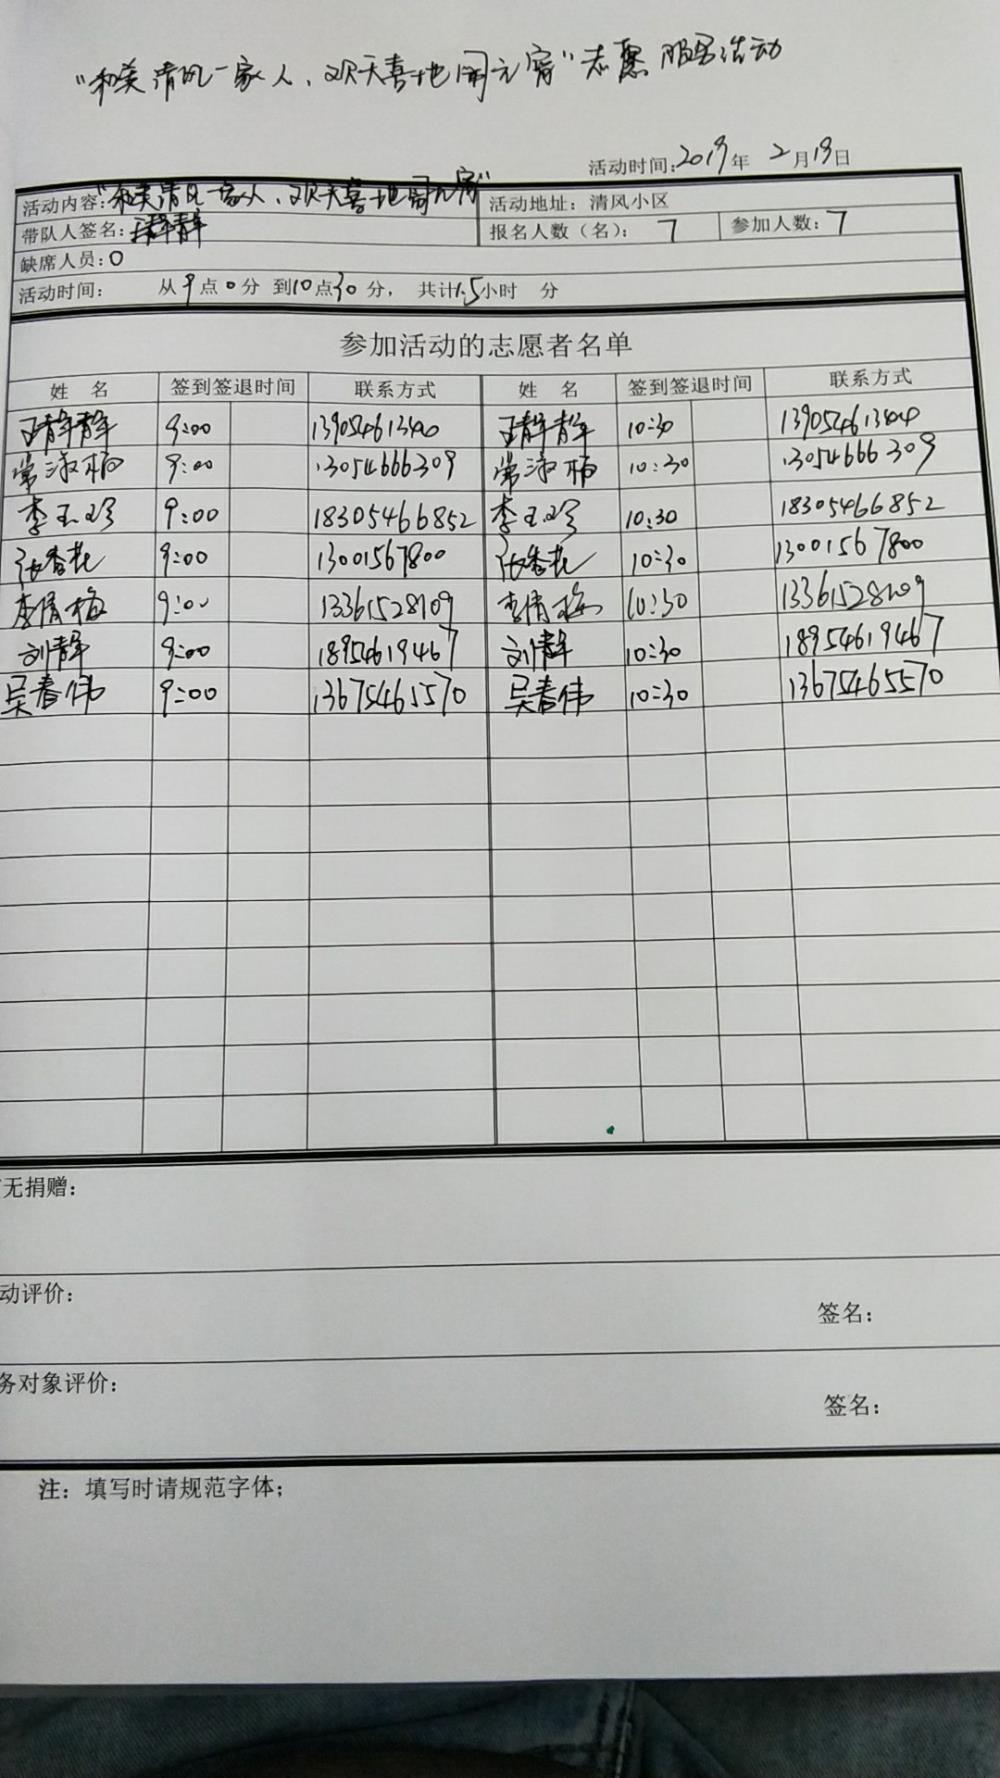 “和美清风一家人、欢天喜地闹元宵”志愿服务活动
活动时间:2019年 2月19日
活动内容:“和美清风一家人、欢天喜地闹元宵” 活动地址: 清风小区
带队人签名:王静静 报名人数(名): 7 参加人数: 7
缺席人员:0
活动时间: 从9点0分 到10点30分, 共计1.5小时 分
参加活动的志愿者名单
姓 名 签到签退时间 联系方式 姓 名 签到签退时间 联系方式
王静静 9:00 139054613400 王静静 10:30 139054613400
常淑梅 9:00 13054666309 常淑梅 10:30 13054666309
李玉珍 9:00 18305466852 李玉珍 10:30 18305466852
张香花 9:00 13001567800 张香花 10:30 13001567800
李倩梅 9:00 13361528109 李倩梅 10:30 13361528109
刘静 9:00 18954619467 刘静 10:30 18954619467
吴春伟 9:00 13675465570 吴春伟 10:30 13675465570
无捐赠:
动评价:
签名:
务对象评价:
签名:
注: 填写时请规范字体;